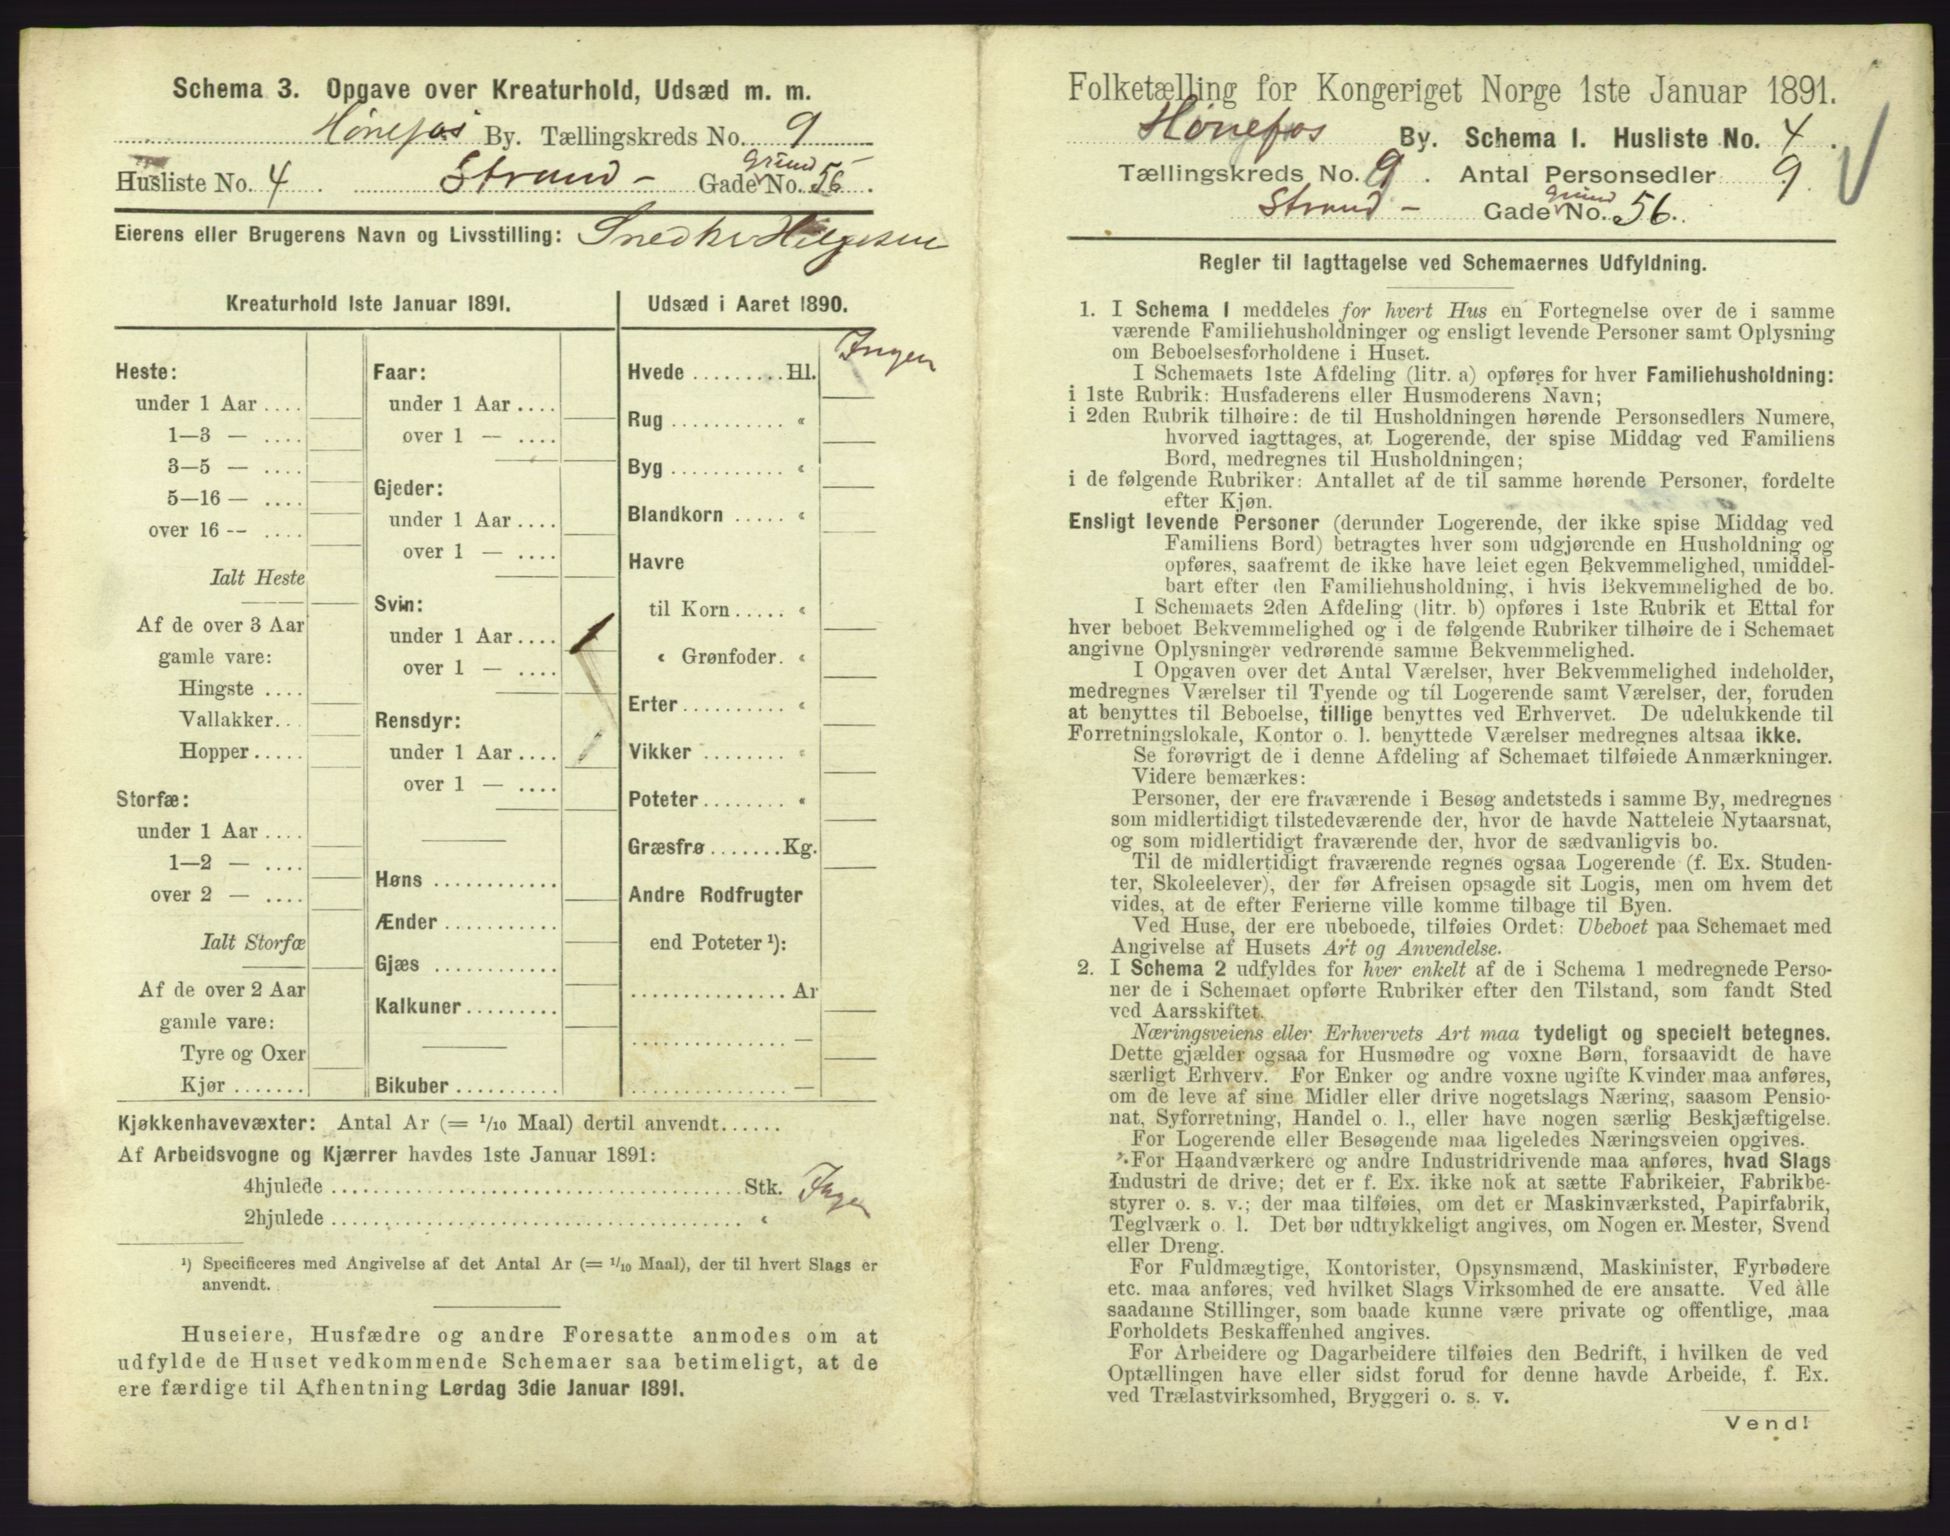 Schema 3. Opgave over Kreaturhold, Udsæd m. m.
Hønefos By. Tællingskreds No. 9
Husliste No. 4 Strand- Gade Grund No. 56
Eierens eller Brugerens Navn og Livsstilling: Snedker Helgesen
Kreaturhold 1ste Januar 1891.
Heste:
under 1 Aar ....
1—3 — ....
3—5 — ....
5—16 — ....
over 16 -- ....
Ialt Heste
Af de over 3 Aar
gamle vare:
Hingste ....
Vallakker...
Hopper .....
Storfæ:
under 1 Aar ....
1—2 — ....
over 2 — ....
Ialt Storfæ
Af de over 2 Aar
gamle vare:
Tyre og Oxer
Kjør .......
Faar:
under 1 Aar ....
over 1 — ....
Gjeder:
under 1 Aar ....
over 1 — ....
Svin:
under 1 Aar .... 1
over 1 — ....
Rensdyr:
under 1 Aar ....
over 1 — ....
Høns ............
Ænder ...........
Gjæs ............
Kalkuner .........
Bikuber ..........
Udsæd i Aaret 1890.
Hvede ......... Hl. Ingen
Rug ........... «
Byg ........... «
Blandkorn ..... «
Havre
til Korn ..... «
« Grønfoder. «
Erter .......... «
Vikker ........ «
Poteter ........ «
Græsfrø ....... Kg.
Andre Rodfrugter
end Poteter ¹):
............... Ar
............... —
............... —
Kjøkkenhavevæxter: Antal Ar (= 1/10 Maal) dertil anvendt......
Af Arbeidsvogne og Kjærrer havdes 1ste Januar 1891:
4hjulede ........................................ Stk. Ingen
2hjulede ........................................ «
¹) Specificeres med Angivelse af det Antal Ar (= 1/10 Maal), der til hvert Slags er
anvendt.
Huseiere, Husfædre og andre Foresatte anmodes om at
udfylde de Huset vedkommende Schemaer saa betimeligt, at de
ere færdige til Afhentning Lørdag 3die Januar 1891.
Folketælling for Kongeriget Norge 1ste Januar 1891.
Hønefos By. Schema 1. Husliste No. 4.
Tællingskreds No. 9. Antal Personsedler 9
Strand- Gade Grund No. 56.
Regler til Iagttagelse ved Schemaernes Udfyldning.
1. I Schema 1 meddeles for hvert Hus en Fortegnelse over de i samme
værende Familiehusholdninger og ensligt levende Personer samt Oplysning
om Beboelsesforholdene i Huset.
I Schemaets 1ste Afdeling (litr. a) opføres for hver Familiehusholdning:
i 1ste Rubrik: Husfaderens eller Husmoderens Navn;
i 2den Rubrik tilhøire: de til Husholdningen hørende Personsedlers Numere,
hvorved iagttages, at Logerende, der spise Middag ved Familiens
Bord, medregnes til Husholdningen;
i de følgende Rubriker: Antallet af de til samme hørende Personer, fordelte
efter Kjøn.
Ensligt levende Personer (derunder Logerende, der ikke spise Middag ved
Familiens Bord) betragtes hver som udgjørende en Husholdning og
opføres, saafremt de ikke have leiet egen Bekvemmelighed, umiddel-
bart efter den Familiehusholdning, i hvis Bekvemmelighed de bo.
I Schemaets 2den Afdeling (litr. b) opføres i 1ste Rubrik et Ettal for
hver beboet Bekvemmelighed og i de følgende Rubriker tilhøire de i Schemaet
angivne Oplysninger vedrørende samme Bekvemmelighed.
I Opgaven over det Antal Værelser, hver Bekvemmelighed indeholder,
medregnes Værelser til Tyende og til Logerende samt Værelser, der, foruden
at benyttes til Beboelse, tillige benyttes ved Erhvervet. De udelukkende til
Forretningslokale, Kontor o. l. benyttede Værelser medregnes altsaa ikke.
Se forøvrigt de i denne Afdeling af Schemaet tilføiede Anmærkninger.
Videre bemærkes:
Personer, der ere fraværende i Besøg andetsteds i samme By, medregnes
som midlertidigt tilstedeværende der, hvor de havde Natteleie Nytaarsnat,
og som midlertidigt fraværende der, hvor de sædvanligvis bo.
Til de midlertidigt fraværende regnes ogsaa Logerende (f. Ex. Studen-
ter, Skoleelever), der før Afreisen opsagde sit Logis, men om hvem det
vides, at de efter Ferierne ville komme tilbage til Byen.
Ved Huse, der ere ubeboede, tilføies Ordet: Ubeboet paa Schemaet med
Angivelse af Husets Art og Anvendelse.
2. I Schema 2 udfyldes for hver enkelt af de i Schema 1 medregnede Perso-
ner de i Schemaet opførte Rubriker efter den Tilstand, som fandt Sted
ved Aarsskiftet.
Næringsveiens eller Erhvervets Art maa tydeligt og specielt betegnes.
Dette gjælder ogsaa for Husmødre og voxne Børn, forsaavidt de have
særligt Erhverv. For Enker og andre voxne ugifte Kvinder maa anføres,
om de leve af sine Midler eller drive nogetslags Næring, saasom Pensio-
nat, Syforretning, Handel o. l., eller have nogen særlig Beskjæftigelse.
For Logerende eller Besøgende maa ligeledes Næringsveien opgives.
For Haandværkere og andre Industridrivende maa anføres, hvad Slags
Industri de drive; det er f. Ex. ikke nok at sætte Fabrikeier, Fabrikbe-
styrer o. s. v.; der maa tilføies, om det er Maskinværksted, Papirfabrik,
Teglværk o. l. Det bør udtrykkeligt angives, om Nogen er Mester, Svend
eller Dreng.
For Fuldmægtige, Kontorister, Opsynsmænd, Maskinister, Fyrbødere
etc. maa anføres, ved hvilket Slags Virksomhed de ere ansatte. Ved alle
saadanne Stillinger, som baade kunne være private og offentlige, maa
Forholdets Beskaffenhed angives.
For Arbeidere og Dagarbeidere tilføies den Bedrift, i hvilken de ved
Optællingen have eller sidst forud for denne havde Arbeide, f. Ex.
ved Trælastvirksomhed, Bryggeri o. s. v.
Vend!